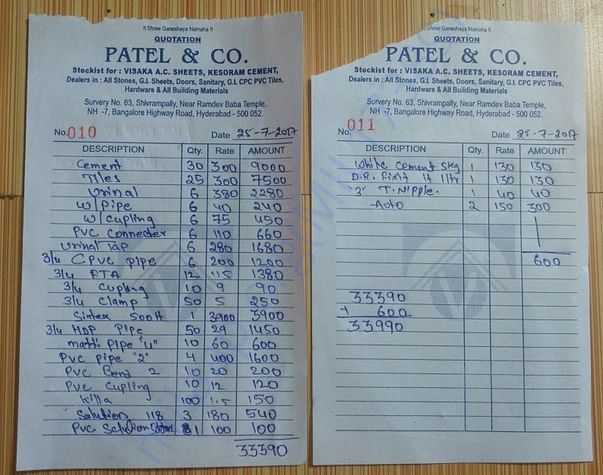 !! Shree Ganeshaya Namaha !!
QUOTATION
PATEL & CO.
Stockist for : VISAKA A.C. SHEETS, KESORAM CEMENT,
Dealers in : All Stones, G.I. Sheets, Doors, Sanitary, G.I. CPC PVC Tiles,
Hardware & All Building Materials
Survery No. 63, Shivrampally, Near Ramdev Baba Temple,
NH -7, Bangalore Highway Road, Hyderabad - 500 052.
No. 010 Date 25-7-2017
DESCRIPTION Qty. Rate AMOUNT
Cement 30 300 9000
Tiles 25 300 7500
Urinal 6 380 2280
W/Pipe 6 40 240
W/Cupling 6 75 450
PVC Connecter 6 110 660
Urinal Tap 6 280 1680
3/4 CPVC Pipe 6 200 1200
3/4 FTA 12 115 1380
3/4 Cupling 10 9 90
3/4 Clamp 50 5 250
Sintex 500 1 3900 3900
3/4 HDP Pipe 50 29 1450
Pipe "4" 10 60 600
PVC Pipe "2" 4 400 1600
PVC Bend 2 10 20 200
PVC Cupling 10 12 120
Killa 100 1.5 150
Solution 118 3 180 540
PVC Solution 1 100 100
33390
!! Shree Ganeshaya Namaha !!
QUOTATION
PATEL & CO.
Stockist for : VISAKA A.C. SHEETS, KESORAM CEMENT,
Dealers in : All Stones, G.I. Sheets, Doors, Sanitary, G.I. CPC PVC Tiles,
Hardware & All Building Materials
Survery No. 63, Shivrampally, Near Ramdev Baba Temple,
NH -7, Bangalore Highway Road, Hyderabad - 500 052.
No. 011 Date 25-7-2017
DESCRIPTION Qty. Rate AMOUNT
White Cement 5kg 1 130 130
D.R. Fixit 1 ltr 1 130 130
"3" T. Nipple 1 40 40
Auto 2 150 300
600
33390
+ 600
33990